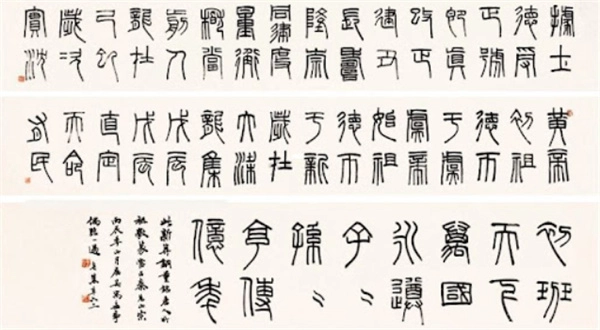 據土
德受
正號
即真
改正
建丑
長壽
隆崇
同律度
量衡
稽當
前人
龍在
己巳
歲次
實沈
黄帝
初祖
德帀
于虞
虞帝
始祖
德帀
于新
歲在
大梁
龍集
戊辰
戊辰
直定
天命
有民
初班
天下
萬國
永遵
子〻
孫〻
亨傳
億年
此新莽銅量銘
丙辰年
偶臨一過